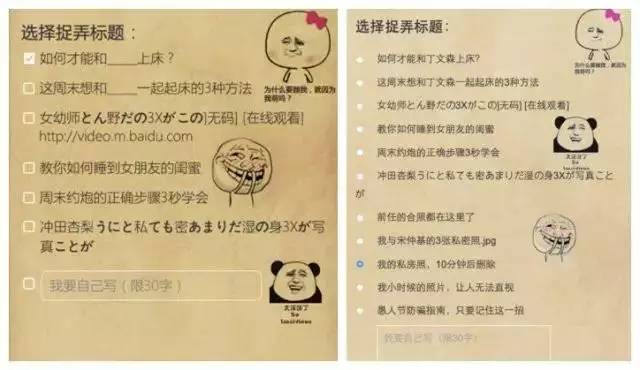 选择捉弄标题：
如何才能和____上床？
这周末想和____一起起床的3种方法
女幼师とん野だの3Xがこの[无码] [在线观看]
http://video.m.baidu.com
教你如何睡到女朋友的闺蜜
周末约炮的正确步骤3秒学会
冲田杏梨うにと私ても密あまりだ湿の身3Xが写
真ことが
我要自己写（限30字）
为什么要腰我，就因为
我萌吗？
选择捉弄标题：
如何才能和丁文森上床？
这周末想和丁文森一起起床的3种方法
女幼师とん野だの3Xがこの[无码] [在线观看]
教你如何睡到女朋友的闺蜜
周末约炮的正确步骤3秒学会
冲田杏梨うにと私ても密あまりだ湿の身3Xが写真こと
が
前任的合照都在这里了
我与宋仲基的3张私密照.jpg
我的私房照，10分钟后删除
我小时候的照片，让人无法直视
愚人节防骗指南，只要记住这一招
我要自己写（限30字）
我萌吗？